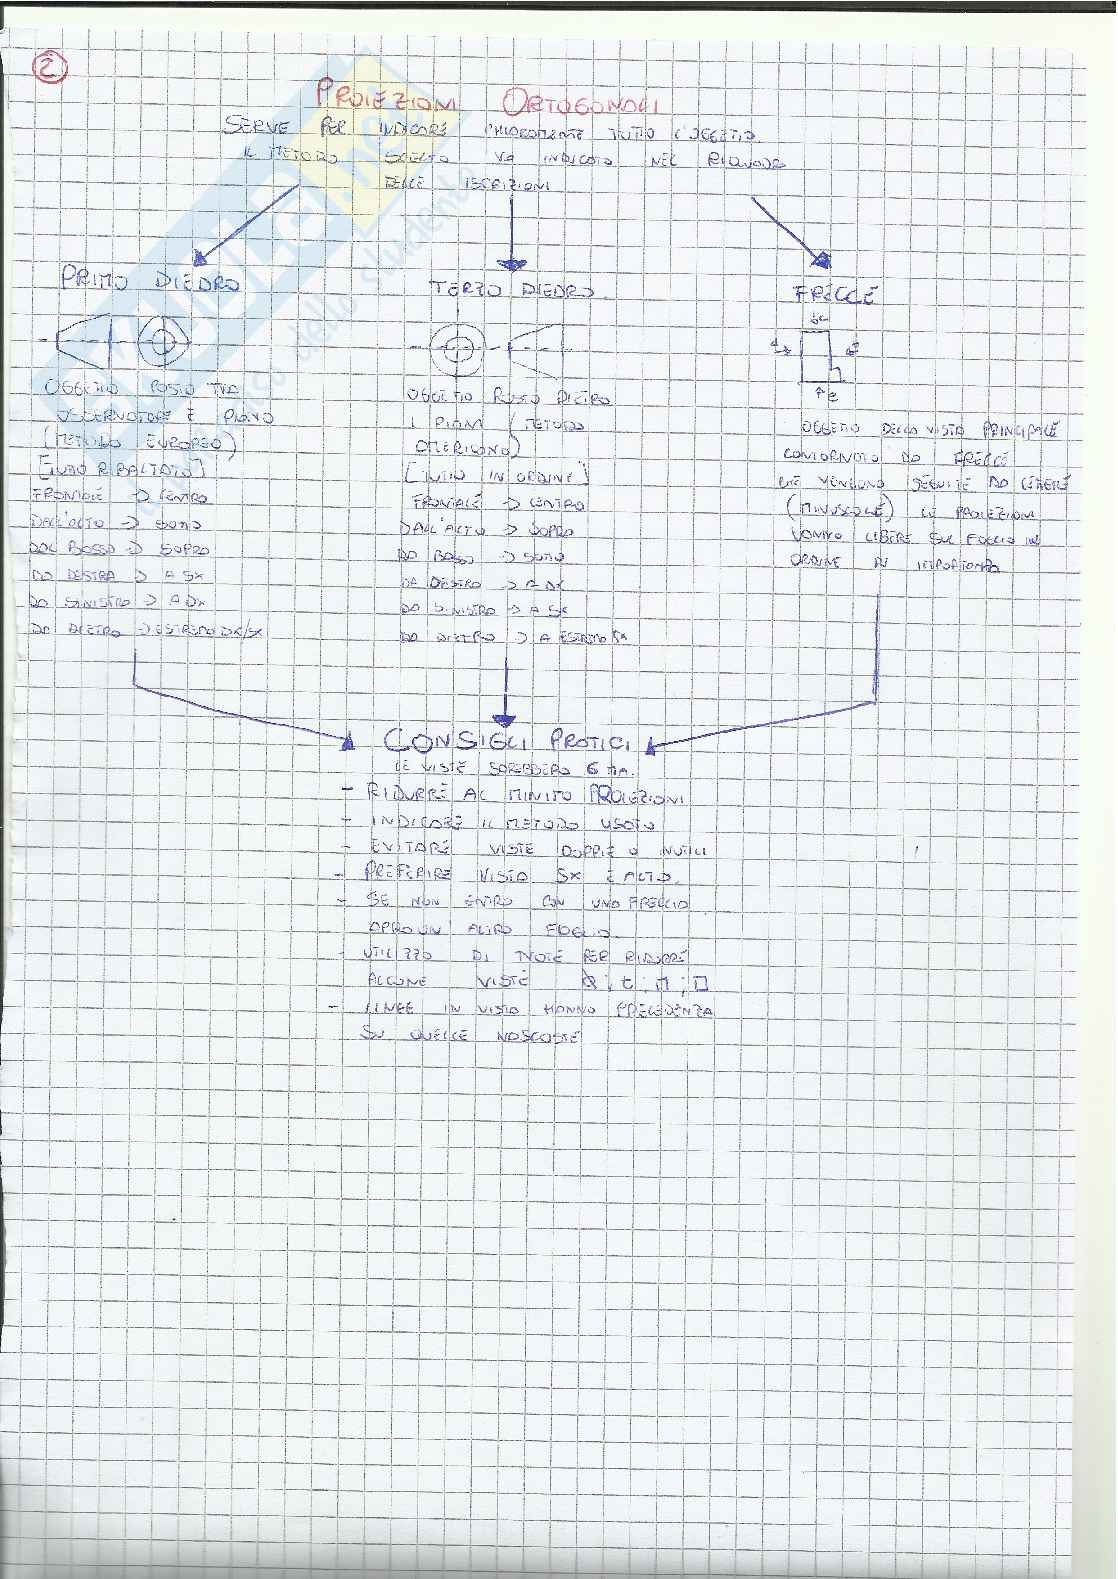 2
PROIEZIONI ORTOGONALI
SERVE PER INDICARE CHIARAMENTE TUTTO L'OGGETTO.
IL METODO SCELTO VA INDICATO NEL RIQUADRO
DELLE ISCRIZIONI
PRIMO DIEDRO
OGGETTO POSTO TRA
OSSERVATORE E PIANO
(METODO EUROPEO)
[TUTTO RIBALTATO]
FRONTALE → CENTRO
DALL'ALTO → SOTTO
DAL BASSO → SOPRA
DA DESTRA → A SX
DA SINISTRA → A DX
DA DIETRO → ESTREMO DX/SX
TERZO DIEDRO
OGGETTO POSTO DIETRO
I PIANI (METODO
AMERICANO)
[TUTTO IN ORDINE]
FRONTALE → CENTRO
DALL'ALTO → SOPRA
DA BASSO → SOTTO
DA DESTRA → A DX
DA SINISTRA → A SX
DA DIETRO → A ESTREMO
FRECCE
OGGETTO DELLA VISTA PRINCIPALE
CONTORNATO DA FRECCE
CHE VENGONO SEGUITE DA LETTERE
(MINUSCOLE) LE PROIEZIONI
VANNO LIBERE SUL FOGLIO IN
ORDINE DI IMPORTANZA
CONSIGLI PRATICI
LE VISTE SAREBBERO 6 MA.
- RIDURRE AL MINIMO PROIEZIONI
- INDICARE IL METODO USATO
- EVITARE VISTE DOPPIE O INUTILI
- PREFERIRE VISTA SX E ALTO.
- SE NON ENTRO CON UNA FRECCIA
APRO UN ALTRO FOGLIO.
- UTILIZZO DI NOTE PER RIDURRE
ALCUNE VISTE
- LINEE IN VISTA HANNO PRECEDENZA
SU QUELLE NASCOSTE